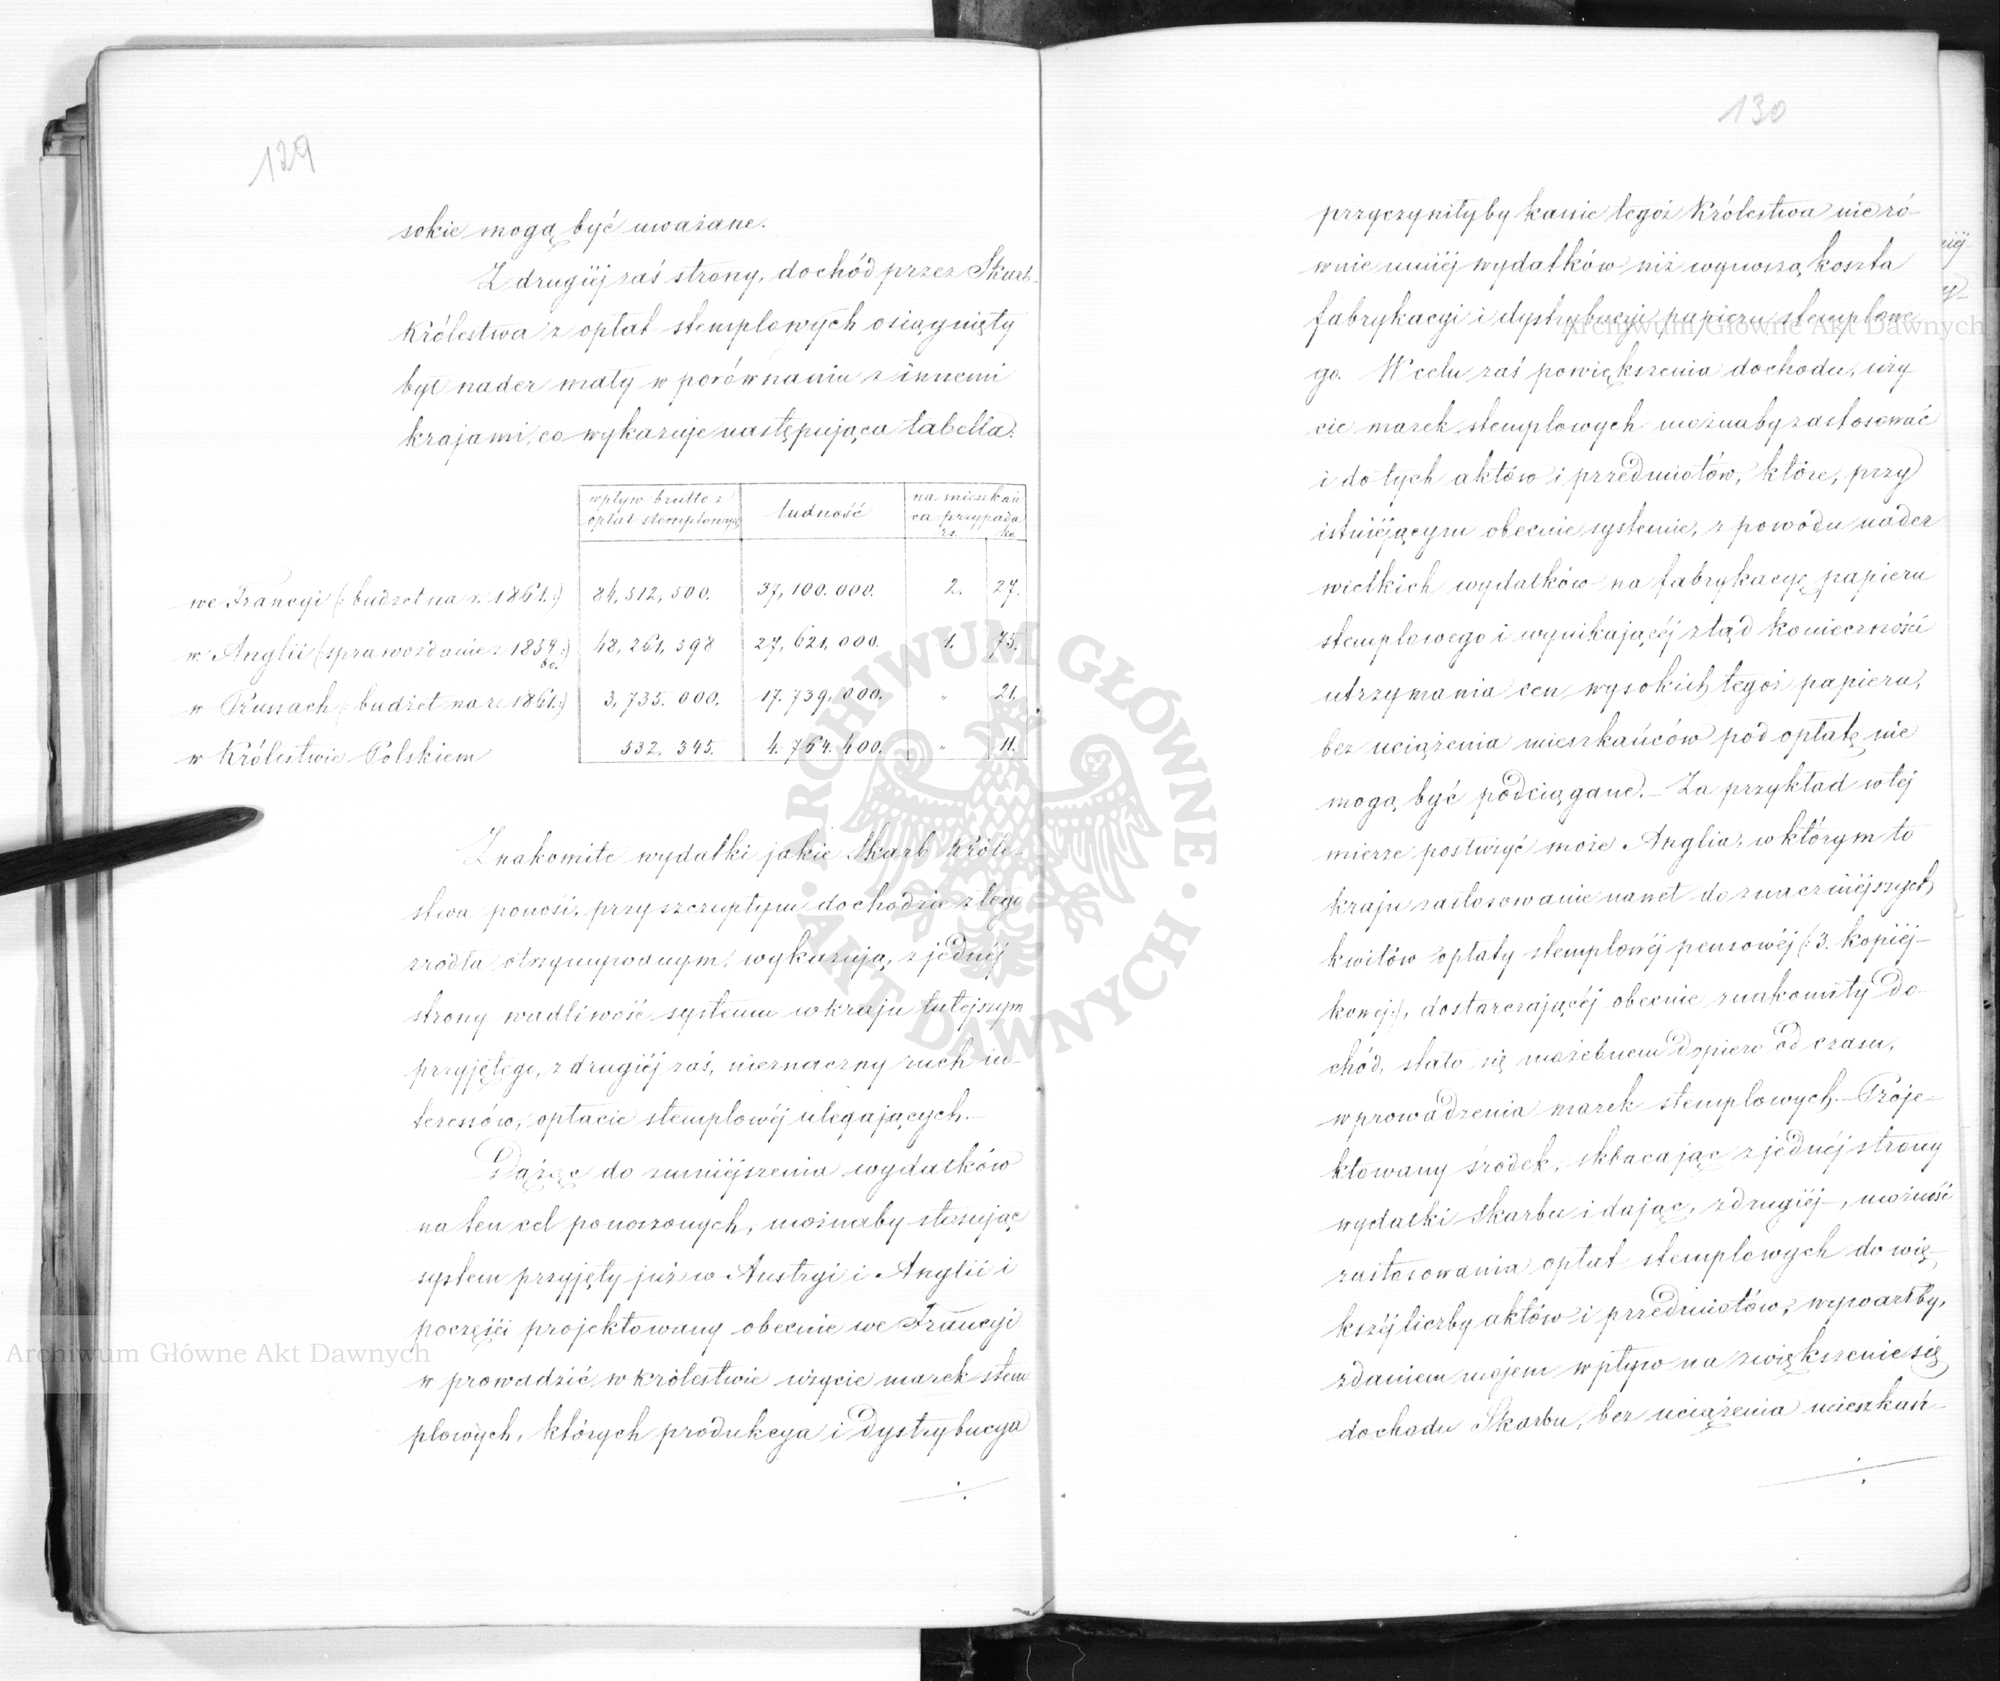 129
sokie mogą być uważane.
Z drugiéj zaś strony, dochód przez Skarb
Królestwa z opłat stemplowych osiągnięty
był nader mały w porównaniu z innemi
krajami, co wykazuje następująca tabella:
wpływ brutto z opłat stemplowych | ludność | na mieszkań ca przypada rs. ko.
we Francyi (: budżet na r. 1861 :) 84,512,500. 37,100.000. 2. 27.
w Anglii (: sprawozdanie z 1859/60. :) 48,261,598 27,621,000. 1. 75.
w Prusach (: budżet na r. 1861 :) 3,735.000. 17.739,000. " 21.
w Królestwie Polskiem 532.345. 4.764.400. " 11.
Znakomite wydatki jakie Skarb Króle-
stwa ponosi, przy szczupłym dochodzie z tego
zrodła otrzymywanym, wykazują, z jednéj
strony wadliwość systemu w kraju tutejszym
przyjętego, z drugiéj zaś, nieznaczny ruch in-
teressów, opłacie stemplowéj ulegających.—
Dążąc do zmniéjszenia wydatków
na ten cel ponoszonych, możnaby stosując
system przyjęty już w Austryi i Anglii i
poczęści projektowany obecnie we Francyi
wprowadzić w królestwie użycie marek stem
plowych, których produkcya i dystrybucya
130
przyczyniłyby kassie tegoż Królestwa nieró-
wnie mniéj wydatków niż wynoszą koszta
fabrykacyi i dystrybucyi papieru stemplowe
go. W celu zaś powiększenia dochodu, uży
cie marek stemplowych możnaby zastosować
i do tych aktów i przedmiotów, które, przy
istniéjącym obecnie systemie, z powodu nader
wielkich wydatków na fabrykacyę papieru
stemplowego i wynikającéj ztąd konieczności
utrzymania cen wysokich tegoż papieru,
bez uciążenia mieszkańców pod opłatę nie
mogą być podciągane.— Za przykład w téj
mierze posłużyć może Anglia, w którym to
kraju zastosowanie nawet do znaczniéjszych
kwitów opłaty stemplowéj pensowéj (: 3. kopiéj-
kowéj :), dostarczającéj obecnie znakomity do-
chód, stało się możebnem dopiero od czasu,
wprowadzenia marek stemplowych.— Proje-
ktowany środek, skracając z jednéj strony
wydatki Skarbu i dając, z drugiéj —, możność
zastosowania opłat stemplowych do wię-
kszéj liczby aktów i przedmiotów, wywarłby,
zdaniem mojem wpływ na zwiększenie się
dochodu Skarbu, bez uciążenia mieszkań-
Archiwum Główne Akt Dawnych
Archiwum Główne Akt Dawnych
ARCHIWUM GŁÓWNE AKT DAWNYCH